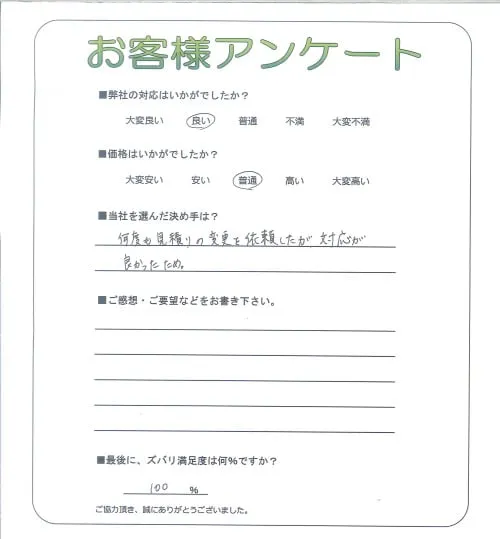 お客様アンケート
■弊社の対応はいかがでしたか？
大変良い 良い 普通 不満 大変不満
■価格はいかがでしたか？
大変安い 安い 普通 高い 大変高い
■当社を選んだ決め手は？
何度も見積りの変更を依頼したが、対応が
良かったため。
■ご感想・ご要望などをお書き下さい。
■最後に、ズバリ満足度は何%ですか？
100 %
ご協力頂き、誠にありがとうございました。